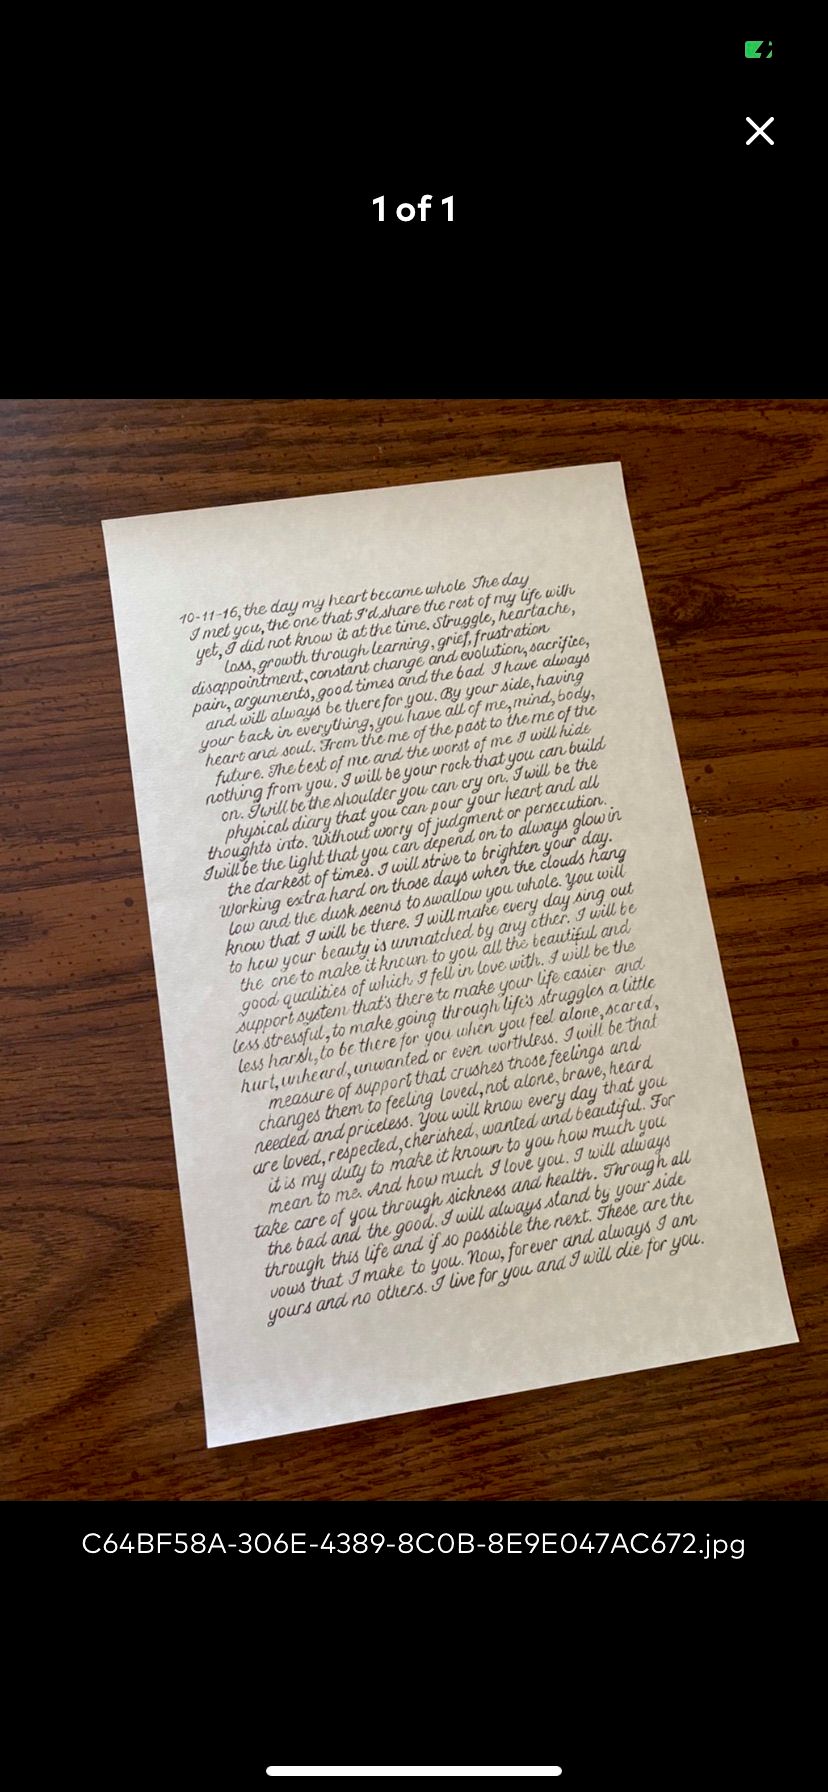 1 of 1
10-11-16, the day my heart became whole The day
I met you, the one that I'd share the rest of my life with
yet, I did not know it at the time. Struggle, heartache,
loss, growth through learning, grief, frustration
disappointment, constant change and evolution, sacrifice,
pain, arguments, good times and the bad I have always
and will always be there for you. By your side, having
your back in everything, you have all of me, mind, body,
heart and soul. From the me of the past to the me of the
future. The best of me and the worst of me I will hide
nothing from you. I will be your rock that you can build
on. I will be the shoulder you can cry on. I will be the
physical diary that you can pour your heart and all
thoughts into. Without worry of judgment or persecution.
I will be the light that you can depend on to always glow in
the darkest of times. I will strive to brighten your day.
Working extra hard on those days when the clouds hang
low and the dusk seems to swallow you whole. You will
know that I will be there. I will make every day sing out
to how your beauty is unmatched by any other. I will be
the one to make it known to you all the beautiful and
good qualities of which I fell in love with. I will be the
support system that's there to make your life easier and
less stressful, to make going through life's struggles a little
less harsh, to be there for you when you feel alone, scared,
hurt, unheard, unwanted or even worthless. I will be that
measure of support that crushes those feelings and
changes them to feeling loved, not alone, brave, heard
needed and priceless. You will know every day that you
are loved, respected, cherished, wanted and beautiful. For
it is my duty to make it known to you how much you
mean to me. And how much I love you. I will always
take care of you through sickness and health. Through all
the bad and the good. I will always stand by your side
through this life and if so possible the next. These are the
vows that I make to you. Now, forever and always I am
yours and no others. I live for you and I will die for you.
C64BF58A-306E-4389-8C0B-8E9E047AC672.jpg